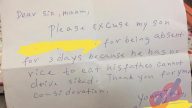 Dear sir, maam,
Please excuse my son
for being absent
for 3 days because he has no
rice to eat his father cannot
drive
Thank you for your
consideration,